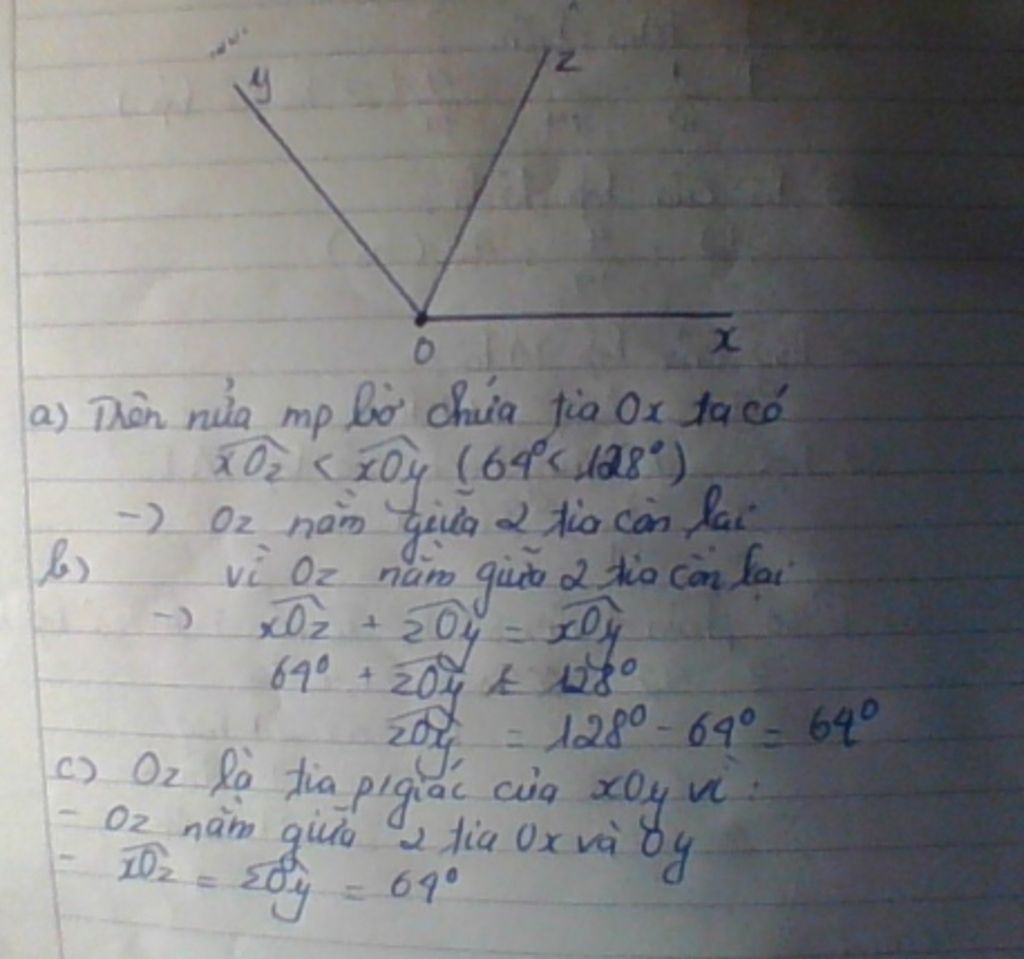 y
z
O
x
a) Trên nửa mp bờ chứa tia Ox ta có
xOz < xOy (64° < 128°)
-) Oz nằm giữa 2 tia còn lại
b) vì Oz nằm giữa 2 tia còn lại
-) xOz + zOy = xOy
64° + zOy = 128°
zOy = 128° - 64° = 64°
c) Oz là tia p/giác của xOy vì :
- Oz nằm giữa 2 tia Ox và Oy
- xOz = zOy = 64°